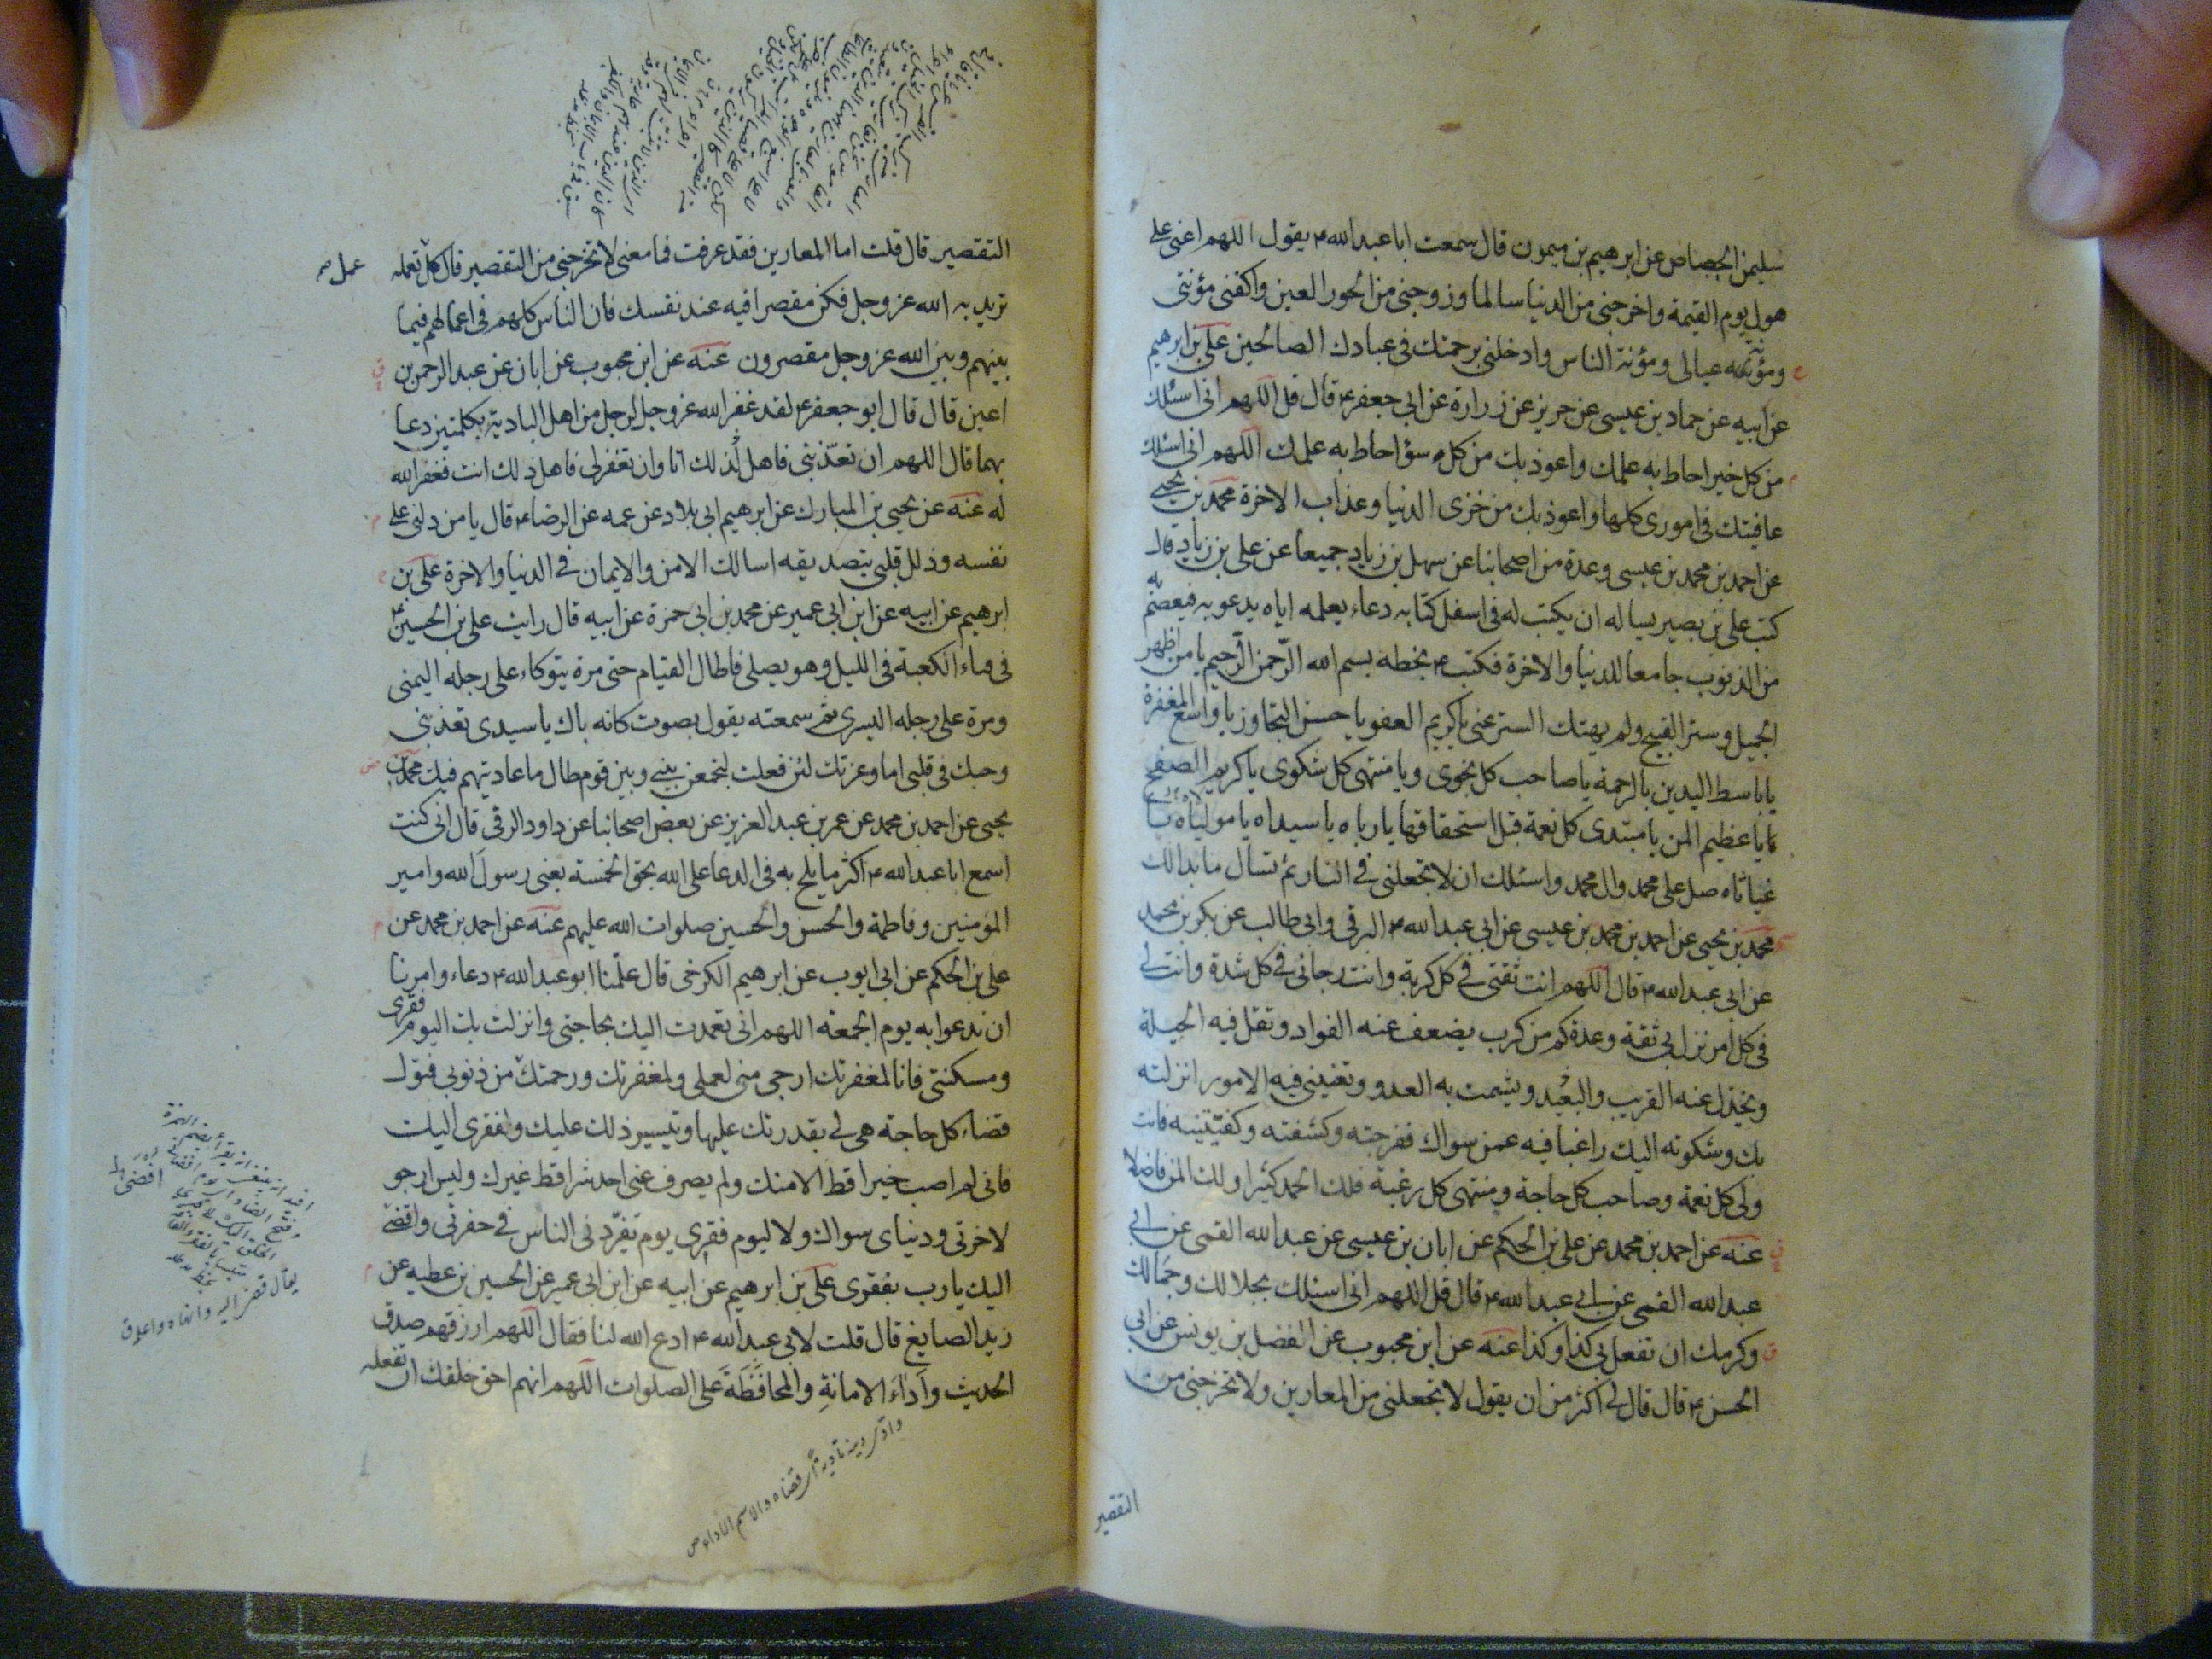 سليمن الجصاص عن ابرهيم بن ميمون قال سمعت ابا عبد الله ع يقول اللهم اعنى على
هول يوم القيمة واخرجنى من الدنيا سالما وزوجنى من الحور العين واكفنى مؤنتى
ومؤنة عيالى ومؤنة الناس وادخلنى برحمتك فى عبادك الصالحين على بن ابرهيم
عن ابيه عن حماد بن عيسى عن حريز عن زرارة عن ابى جعفر ع قال قل اللهم انى اسئلك
من كل خير احاط به علمك واعوذ بك من كل سؤ احاط به علمك اللهم انى اسئلك
عافيتك فى امورى كلها واعوذ بك من خزى الدنيا وعذاب الاخرة محمد بن يحيى
عن احمد بن محمد بن عيسى وعدة من اصحابنا عن سهل بن زياد جميعا عن على بن زياد قال
كتب على بن بصير يساله ان يكتب له فى اسفل كتابه دعاء يعلمه اياه يدعو به فيعصم به
من الذنوب جامعا للدنيا والاخرة فكتب ع بخطه بسم الله الرّحمن الرّحيم يا من اظهر
الجميل وستر القبيح ولم يهتك الستر عنى يا كريم العفو يا حسن التجاوز يا واسع المغفرة
يا باسط اليدين بالرحمة يا صاحب كل نجوى ويا منتهى كل شكوى يا كريم الصفح
يا عظيم المن يا مبتدى كل نعمة قبل استحقاقها يا رباه يا سيداه يا مولياه يا
غياثاه صل على محمد وال محمد واسئلك ان لا تجعلنى فى النار ثم تسال ما بدا لك
محمد بن يحيى عن احمد بن محمد بن عيسى عن ابى عبد الله ع البرقى وابى طالب عن بكر بن محمد
عن ابى عبد الله ع قال اللهم انت ثقتى فى كل كربة وانت رجائى فى كل شدة وانت لى
فى كل امر نزل بى ثقة وعدة كم من كرب يضعف عنه الفواد وتقل فيه الحيلة
ويخذل عنه القريب والبعيد ويشمت به العدو وتعنينى فيه الامور انزلته
بك وشكوته اليك راغبا فيه عمن سواك ففرجته وكشفته وكفيتنيه فانت
ولى كل نعمة وصاحب كل حاجة ومنتهى كل رغبة فلك الحمد كثيرا ولك المن فاضلا
عنه عن احمد بن محمد عن على بن الحكم عن ابان بن عيسى عن عبد الله القمى عن ابى
عبد الله القمى عن ابى عبد الله ع قال قل اللهم انى اسئلك بجلالك وجمالك
وكرمك ان تفعل بى كذا وكذا عنه عن ابن محبوب عن الفضل بن يونس عن ابى
الحسن ع قال قال لى اكثر من ان يقول لا تجعلنى من المعارين ولا تخرجنى من
التقصير
التقصير قال قلت اما المعارين فقد عرفت فما معنى لا تخرجنى من التقصير قال كل تعمله
عمل
تريد به الله عز وجل فكن مقصرا فيه عند نفسك فان الناس كلهم فى اعمالهم فيما
بينهم وبين الله عز وجل مقصرون عنه عن ابن محبوب عن ابان عن عبد الرحمن بن
اعين قال قال ابو جعفر ع لقد غفر الله عز وجل لرجل من اهل البادية بكلمتين دعا
بهما قال اللهم ان تعذّبنى فاهل لذلك انا وان تغفر لى فاهل ذلك انت فغفر الله
له عنه عن يحيى بن المبارك عن ابرهيم ابى بلاد عن عمه عن الرضا ع قال يا من دلنى على
نفسه وذلل قلبى بتصديقه اسالك الامن والايمان فى الدنيا والاخرة على بن
ابرهيم عن ابيه عن ابن ابى عمير عن محمد بن ابى حمزة عن ابيه قال رايت على بن الحسين ع
فى فناء الكعبة فى الليل وهو يصلى فاطال القيام حتى مرة يتوكاء على رجله اليمنى
ومرة على رجله اليسرى ثم سمعته يقول بصوت كانه باك يا سيدى تعذبنى
وحبك فى قلبى اما وعزتك لئن فعلت لتجمعن بينى وبين قوم طال ما عاديتهم فيك محمد بن
يحيى عن احمد بن محمد عن عمر بن عبد العزيز عن بعض اصحابنا عن داود الرقى قال انى كنت
اسمع ابا عبد الله ع اكثر ما يلح به فى الدعا على الله بحق الخمسة يعنى رسول الله وامير
المؤمنين وفاطمة والحسن والحسين صلوات الله عليهم عنه عن احمد بن محمد عن
على بن الحكم عن ابى ايوب عن ابرهيم الكرخى قال علّمنا ابو عبد الله ع دعاء وامرنا
ان ندعوا به يوم الجمعة اللهم انى تعمدت اليك بحاجتى وانزلت بك اليوم فقرى
ومسكنتى فانا لمغفرتك ارجى منى لعملى ولمغفرتك ورحمتك من ذنوبى فتول
قضاء كل حاجة هى لى بقدرتك عليها وتيسير ذلك عليك ولفقرى اليك
فانى لم اصب خيرا قط الا منك ولم يصرف عنى احد شرا قط غيرك وليس ارجو
لاخرتى ودنياى سواك ولا ليوم فقرى يوم تفرّدنى الناس فى حفرتى وافضى
اليك يا رب بفقرى على بن ابرهيم عن ابيه عن ابن ابى عمير عن الحسين بن عطيه عن
زيد الصايغ قال قلت لابى عبد الله ع ادع الله لنا فقال اللهم ارزقهم صدق
الحديث وآداء الامانةِ والمحافظَةَ على الصلوات اللهم انهم احق خلقك ان تفعله